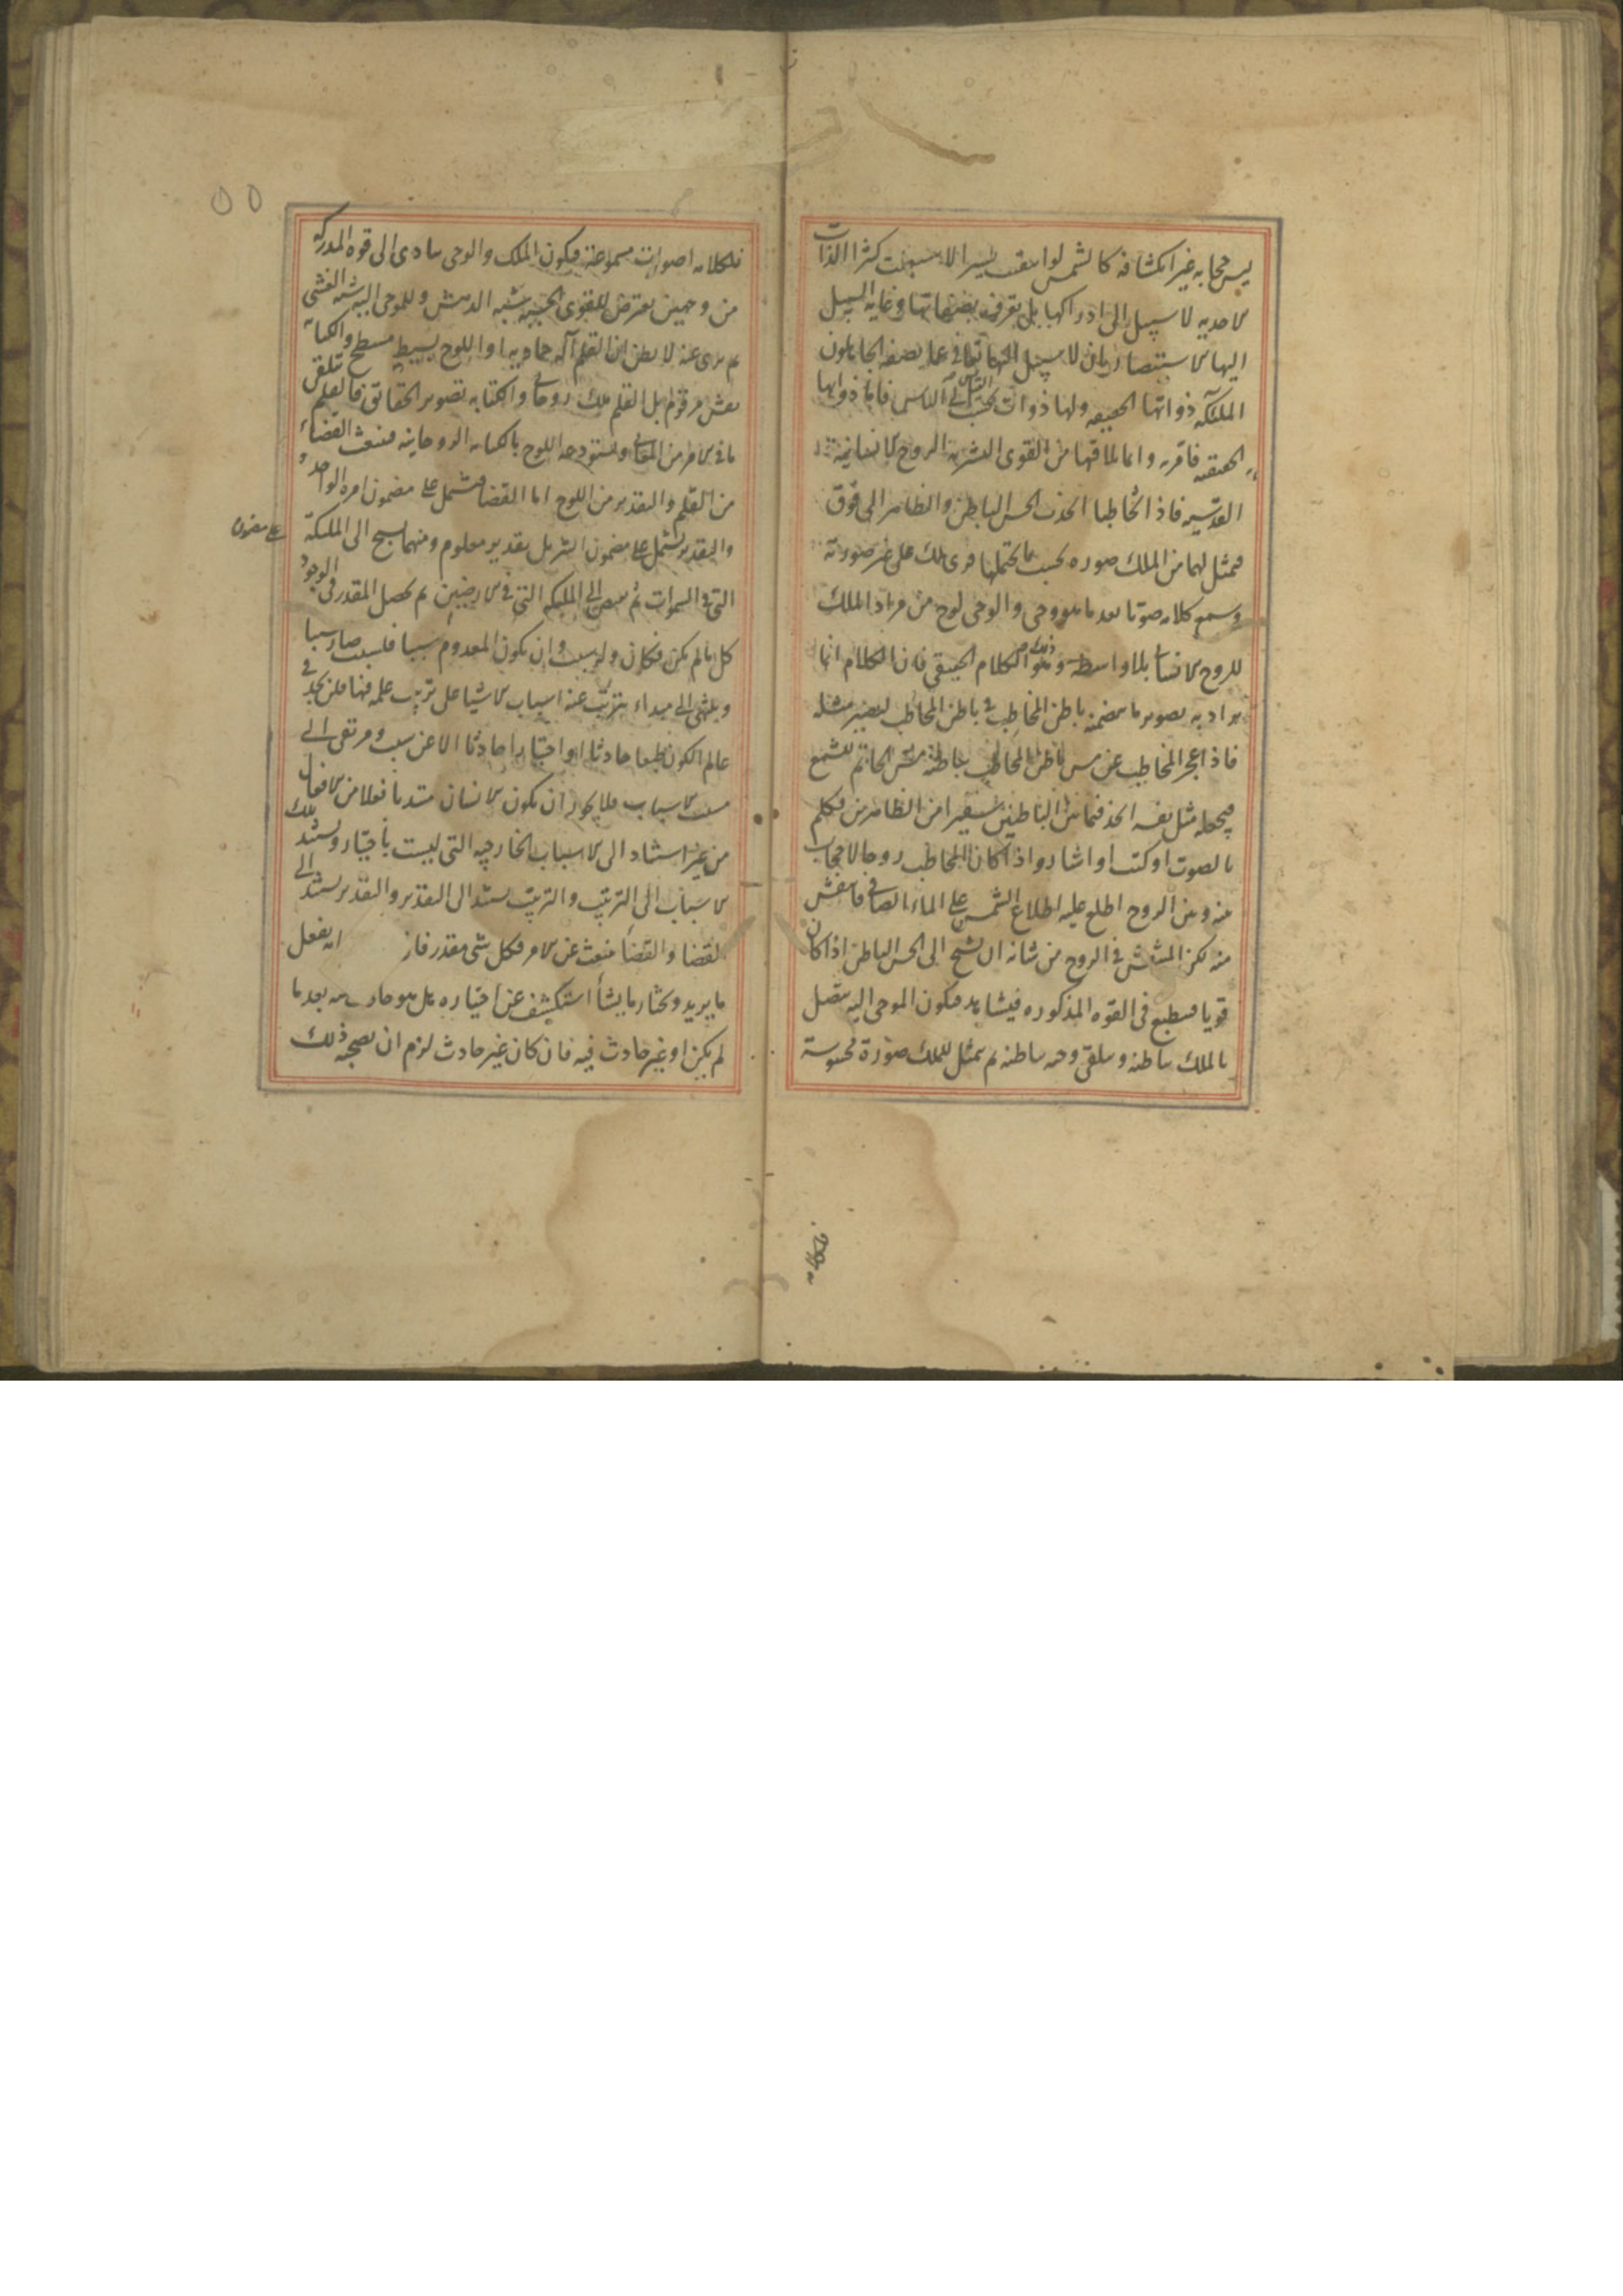 ليس حجابه غير انكشافه كالشمس لو انتقب يسيرا لاستعلت كثيرا الذات
الاحديه لا سبيل الى ادراكها بل تعرف بصفاتها وغايه السبيل
اليها الاستبصار بان لا سبيل اليها تعالى عما يصفه الجاهلون
الملئكه ذواتها الحقيقه ولها ذوات بحسب القياس الى الناس فاما ذواتها
الحقيقه فامريه وانما يلاقيها من القوى البشريه الروح الانسانيه
القدسيه فاذا تخاطبا انجذب الحس الباطن والظاهر الى فوق
فيتمثل لها من الملك صوره بحسب ما يحتملها فيرى ملك على غير صورته
ويسمع كلامه صوتا بعد ما هو وحى والوحى لوح من مراد الملك
للروح الانسانى بلا واسطه وذلك هو الكلام الحقيقى فان الكلام انما
يراد به تصوير ما يتضمنه باطن المخاطِب فى باطن المخاطَب ليصير مثله
فاذا عجز المخاطب عن مس باطن المخاطب بباطنه مس الخاتم للشمع
فيجعله مثل نفسه اتخذ فيما بين الباطنين سفيرا من الظاهرين فتكلم
بالصوت او كتب او اشار واذا كان المخاطب روحا لا حجاب
بينه وبين الروح اطلع عليه اطلاع الشمس على الماء الصافى فانتقش
منه لكن المنتقش فى الروح من شانه ان يشبح الى الحس الباطن اذا كان
قويا فينطبع فى القوه المذكوره فيشاهد فيكون الموحى اليه يتصل
بالملك بباطنه ويتلقى وحيه بباطنه ثم يتمثل للملك صورة محسوسة
ولكلامه
ولكلامه اصوات مسموعة فيكون الملك والوحى يتادى الى قوه المدركه
من وجهين يعترض للقوى الحسيه شبه الدهش وللموحى اليه شبه الغشى
ثم يرى عنه لا يظن ان القلم آله جماديه او اللوح بسيط مسطح والكتابه
نقش مرقوم بل القلم ملك روحانى والكتابه تصوير الحقائق فالقلم يتلقى
ما فى الامر من المعانى ويستودعه اللوح بالكتابه الروحانيه فينبعث القضاء
من القلم والتقدير من اللوح اما القضا فيشتمل على مضمون امره الواحد
والتقدير يشتمل على مضمون التنزيل بقدر معلوم ومنهما يسبح الى الملئكة
على مضمون
التى فى السموات ثم يفيض الى الملئكه التى فى الارضين ثم يحصل المقدر فى الوجود
كل ما لم يكن فكان وله سبب ولن يكون المعدوم سببا فلسبب صار سببا
وينتهى الى مبداء يترتب عنه اسباب الاشيا على ترتيب علمه فيها فلن تجد فى
عالم الكون طبعا حادثا او اختيارا حادثا الا عن سبب ويرتقى الى
مسبب الاسباب فلا يجوز ان يكون الانسان مبتديا فعلا من الافعال
من غير استناد الى الاسباب الخارجيه التى ليست باختياره ويستند تلك
الاسباب الى الترتيب والترتيب يستند الى التقدير والتقدير يستند الى
القضا والقضا ينبعث عن الامر وكل شى مقدر فان انه يفعل
ما يريد ويختار ما يشأ استكشف عن اختياره هل هو حادث فيه بعد ما
لم يكن او غير حادث فيه فان كان غير حادث لزم ان يصحبه ذلك